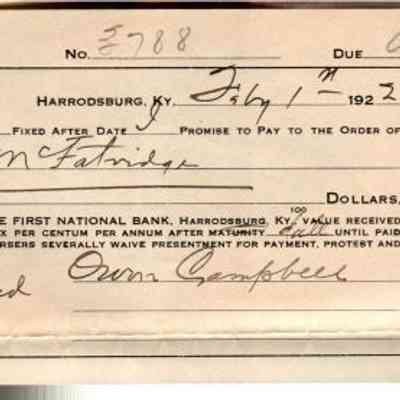 No. 5788 DUE
HARRODSBURG, KY. Feby 1st 1922
FIXED AFTER DATE I PROMISE TO PAY TO THE ORDER OF
McFatridge
DOLLARS,
E FIRST NATIONAL BANK, HARRODSBURG, KY. VALUE RECEIVED
X PER CENTUM PER ANNUM AFTER MATURITY date UNTIL PAID
RSERS SEVERALLY WAIVE PRESENTMENT FOR PAYMENT, PROTEST AND
Owen Campbell